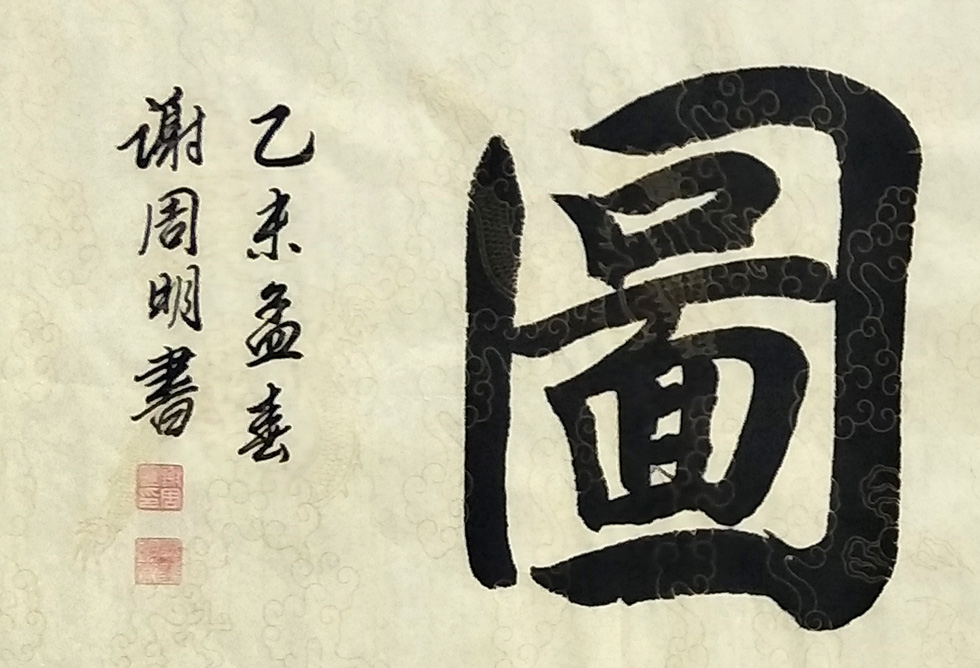 圖
乙未孟春
謝周明書